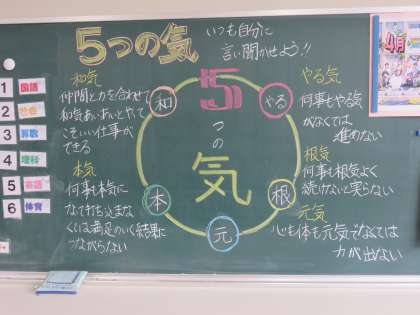 5つの気
いつも自分に
言い聞かせよう!!
和気
仲間と力を合わせて
和気あいあいとやって
こそいい仕事が
できる
本気
何事も本気に
なって打ち込まな
くては満足のいく結果に
つながらない
和
5
やる
つ
の
気
本
根
元
やる気
何事もやる気
がなくては
進めない
根気
何事も根気よく
続けないと実らない
元気
心も体も元気でなくては
力が出ない
1 国語
2
3 算数
4 理科
5 英語
6 体育
4月